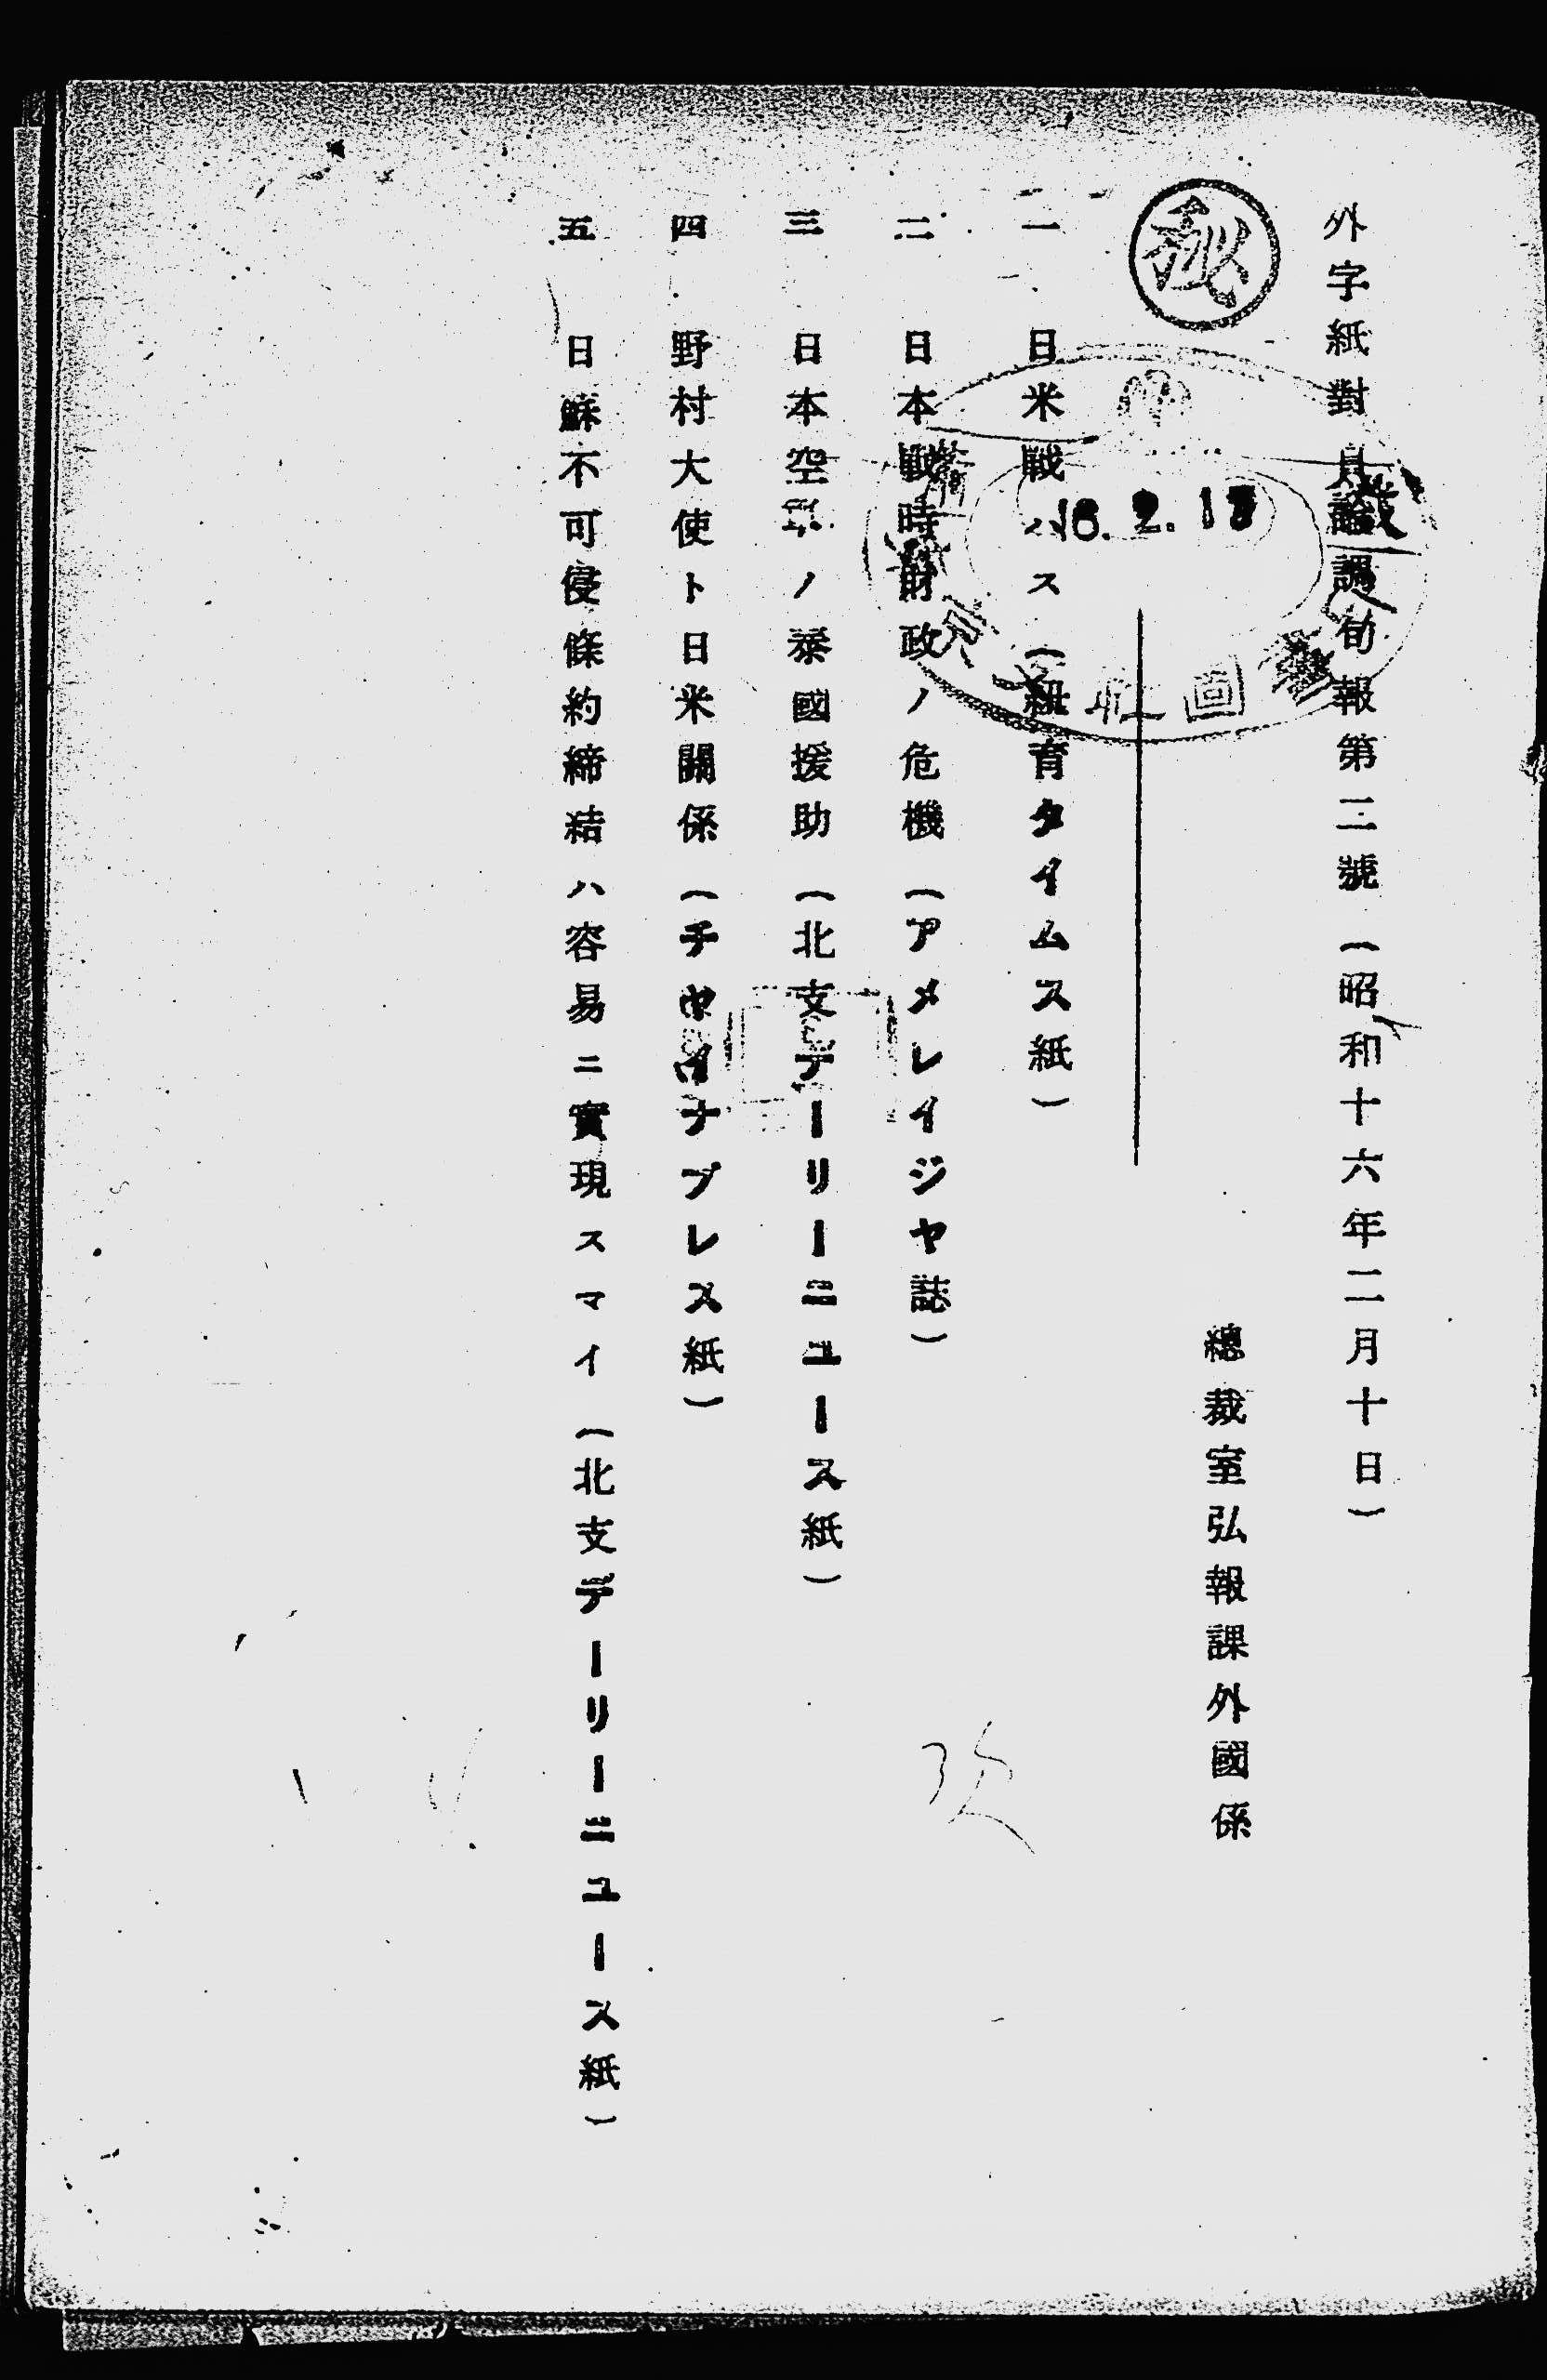 外字紙對日論調旬報第二號(昭和十六年二月十日)
總裁室弘報課外國係
秘
16.2.17
一 日米戰ハス(紐育タイムス紙)
二 日本戰時財政ノ危機(アメレイジヤ誌)
三 日本空軍ノ泰國援助(北支デーリーニユース紙)
四 野村大使ト日米關係(チヤイナプレス紙)
五 日蘇不可侵條約締結ハ容易ニ實現スマイ(北支デーリーニユース紙)